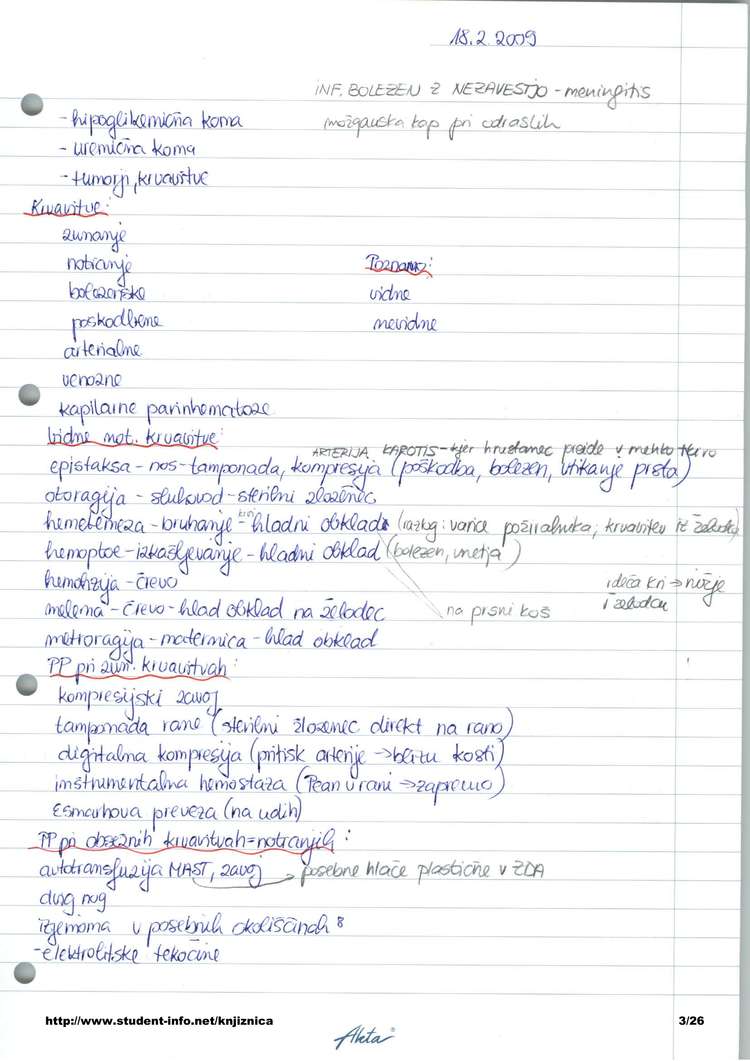 18.2.2009
INF. BOLEZEN Z NEZAVESTJO - meningitis
- hipoglikemična koma
možganska kap pri odraslih
- uremična koma
- tumorji, krvavitve
Krvavitve:
zunanje
notranje
Poznamo:
bolezenske
vidne
poškodbene
nevidne
arterialne
venozne
kapilarne parinhematoze
Vidne not. krvavitve:
ARTERIJA KAROTIS - kjer hrustanec preide v mehko tkivo
epistaksa - nos - tamponada, kompresija (poškodba, bolezen, vtikanje prsta)
otoragija - sluhovod - sterilni zloženec
hemetemeza - bruhanje krvi - hladni obklad (razlog: varice požiralnika, krvavitev iz želodca)
hemoptoe - izkašljevanje - hladni obklad (bolezen, vnetja)
hemohzija - črevo
ideča kri → nižje
melema - črevo - hlad obklad na želodec
na prsni koš
i želodcu
metroragija - maternica - hlad obklad
PP pri zun. krvavitvah:
kompresijski zavoj
tamponada rane (sterilni zloženec direkt na rano)
digitalna kompresija (pritisk arterije → blizu kosti)
instrumentalna hemostaza (Pean v rani → zapremo)
Esmarhova preveza (na udih)
PP pri obsežnih krvavitvah = notranjih:
avtotransfuzija MAST, zavoj → posebne hlače plastične v ZDA
dvig nog
izjemoma v posebnih okoliščinah:
- elektrolitske tekočine
http://www.student-info.net/knjiznica
3/26
Aleta